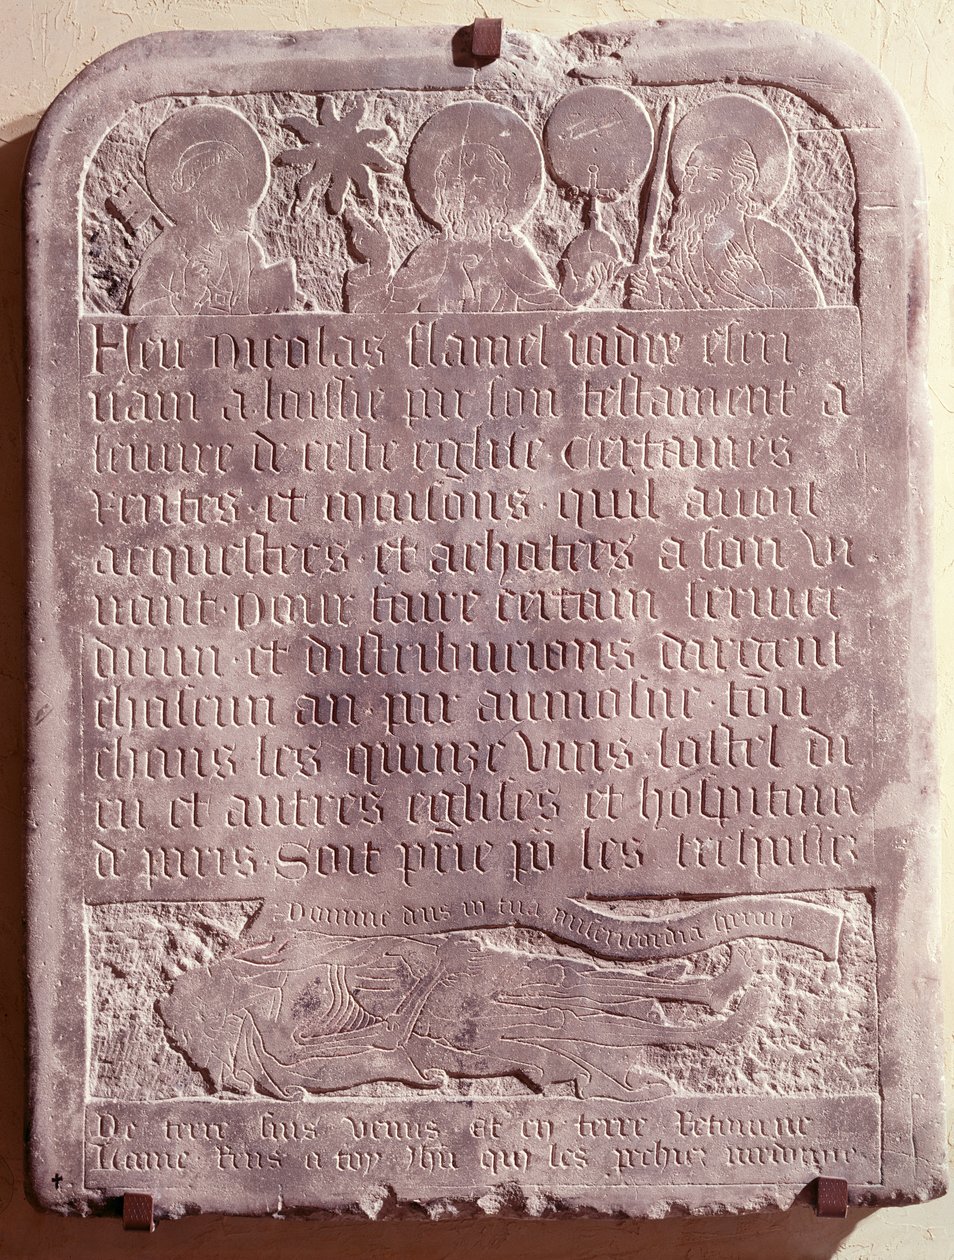 Feu Nicolas flamel iadis escri
uain a laissie par son testament a
leuure de ceste eglise Certaines
rentes et maisons quil auoit
acquestees et achatees a son vi
uant pour faire certain seruice
diuin et distribucions dargent
chascun an par aumosne tou
chans les quinze vins lostel di
eu et autres eglises et hospitaux
de paris Soit prie po les trespassez
Domine deus in tua misericordia speraui
De terre suis venus Et en terre Retourne
Lame Rens a toy Jhu qui les pechiez pardonne